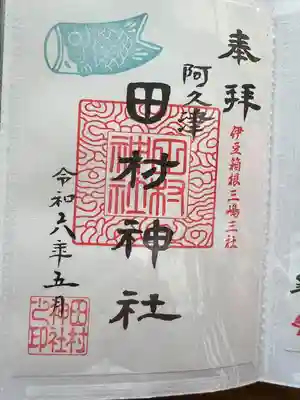 奉拝
伊豆箱根三嶋三社
阿久津
田村神社
田村神社
令和六年五月
田村神社之印